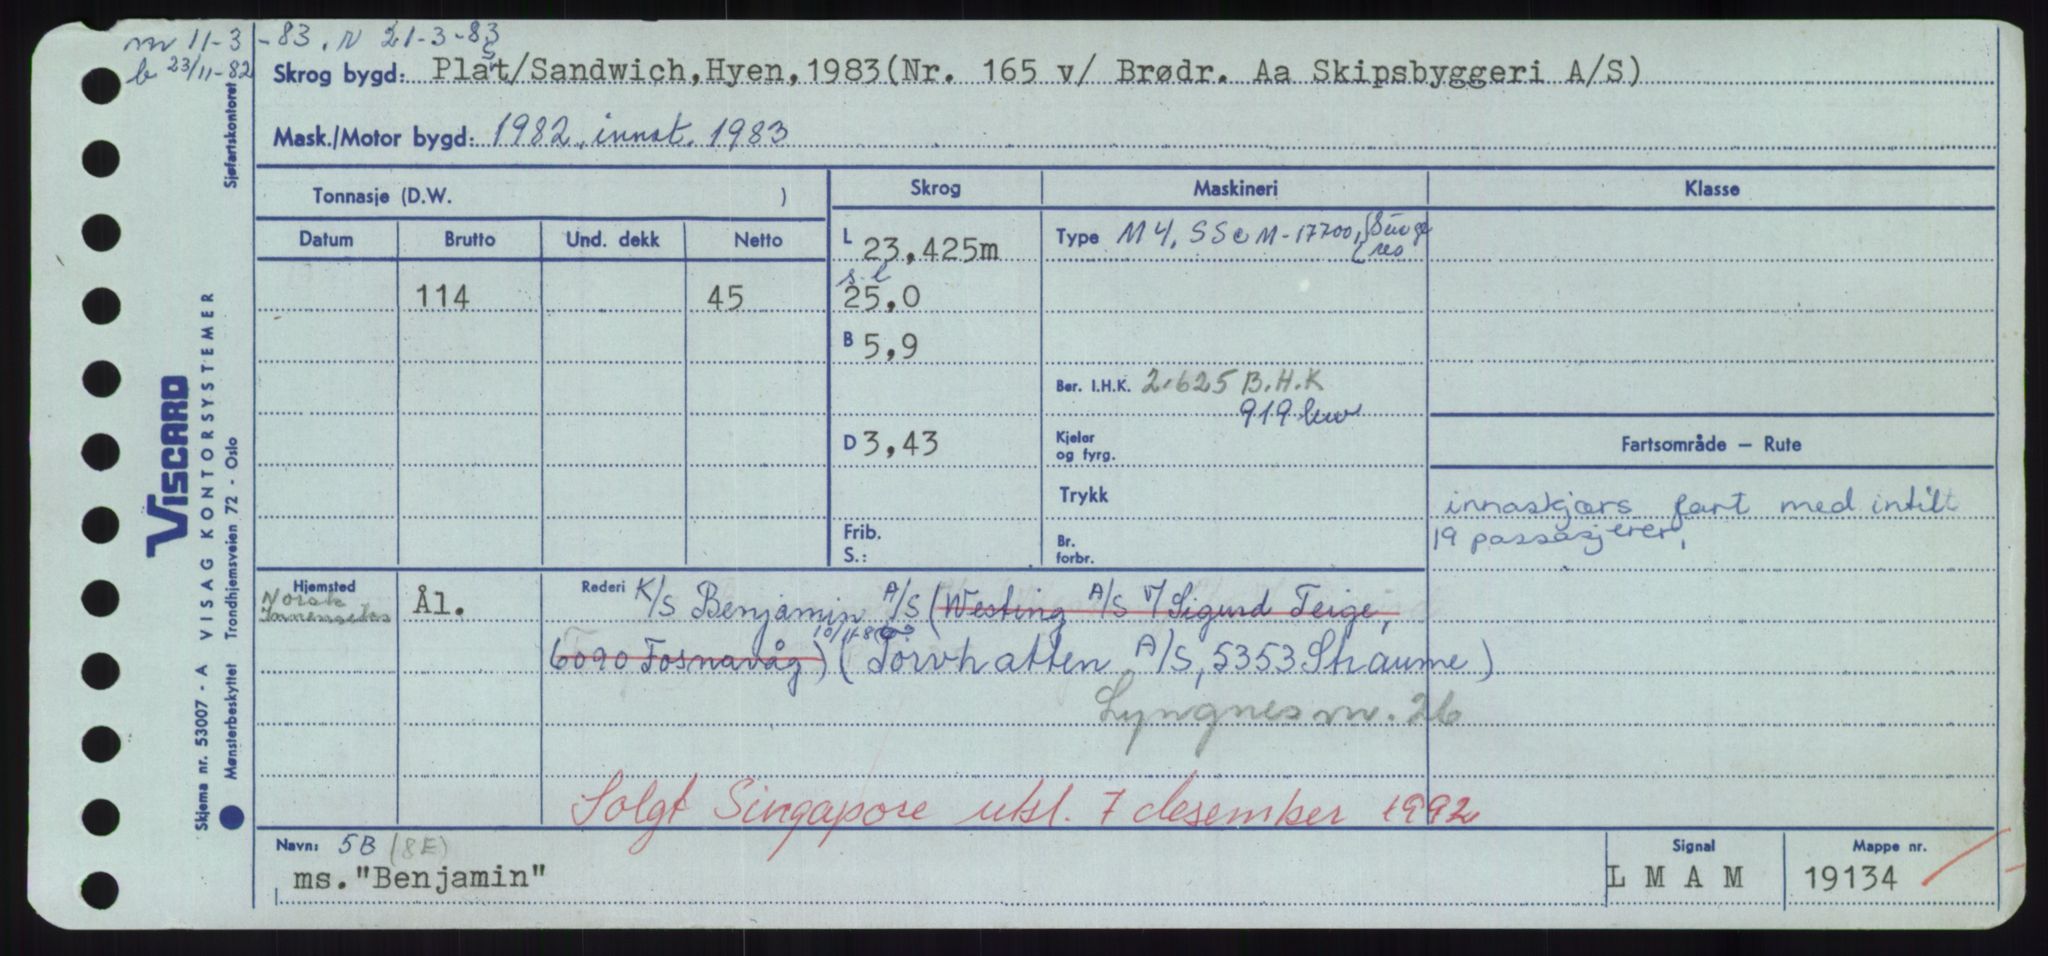 m 11-3-83. N 21-3-83
b 23/11-82
Skrog bygd: Plast/Sandwich, Hyen, 1983(Nr. 165 v/ Brødr. Aa Skipsbyggeri A/S)
Mask./Motor bygd: 1982, innst. 1983
Tonnasje (D.W. )
Skrog
Maskineri
Klasse
Datum
Brutto
Und. dekk
Netto
L 23,425m
Type M 4, SS
s.l
114
45
25,0
B 5,9
Ber. I.H.K. 2.625 B.H.K
919 kw
D 3,43
Kjeler og fyrg.
Fartsområde — Rute
Trykk
innaskjærs fart med intill
19 passasjerer.
Frib.
S.:
Br. forbr.
Hjemsted
Norsk
Ål.
Rederi K/S Benjamin A/S (Westing A/S v/ Sigurd Teige,
6090 Fosnavåg) (Torvhatten A/S, 5353 Straume)
Lyngnesv. 26
Solgt Singapore utsl. 7 desember 1992
Navn: 5B (8E)
ms."Benjamin"
Signal
L M A M
Mappe nr.
19134
Sjøfartskontoret
VISCARD
Skjema nr. 53007 - A VISAG KONTORSYSTEMER
Mønsterbeskyttet Trondhjemsveien 72 - Oslo